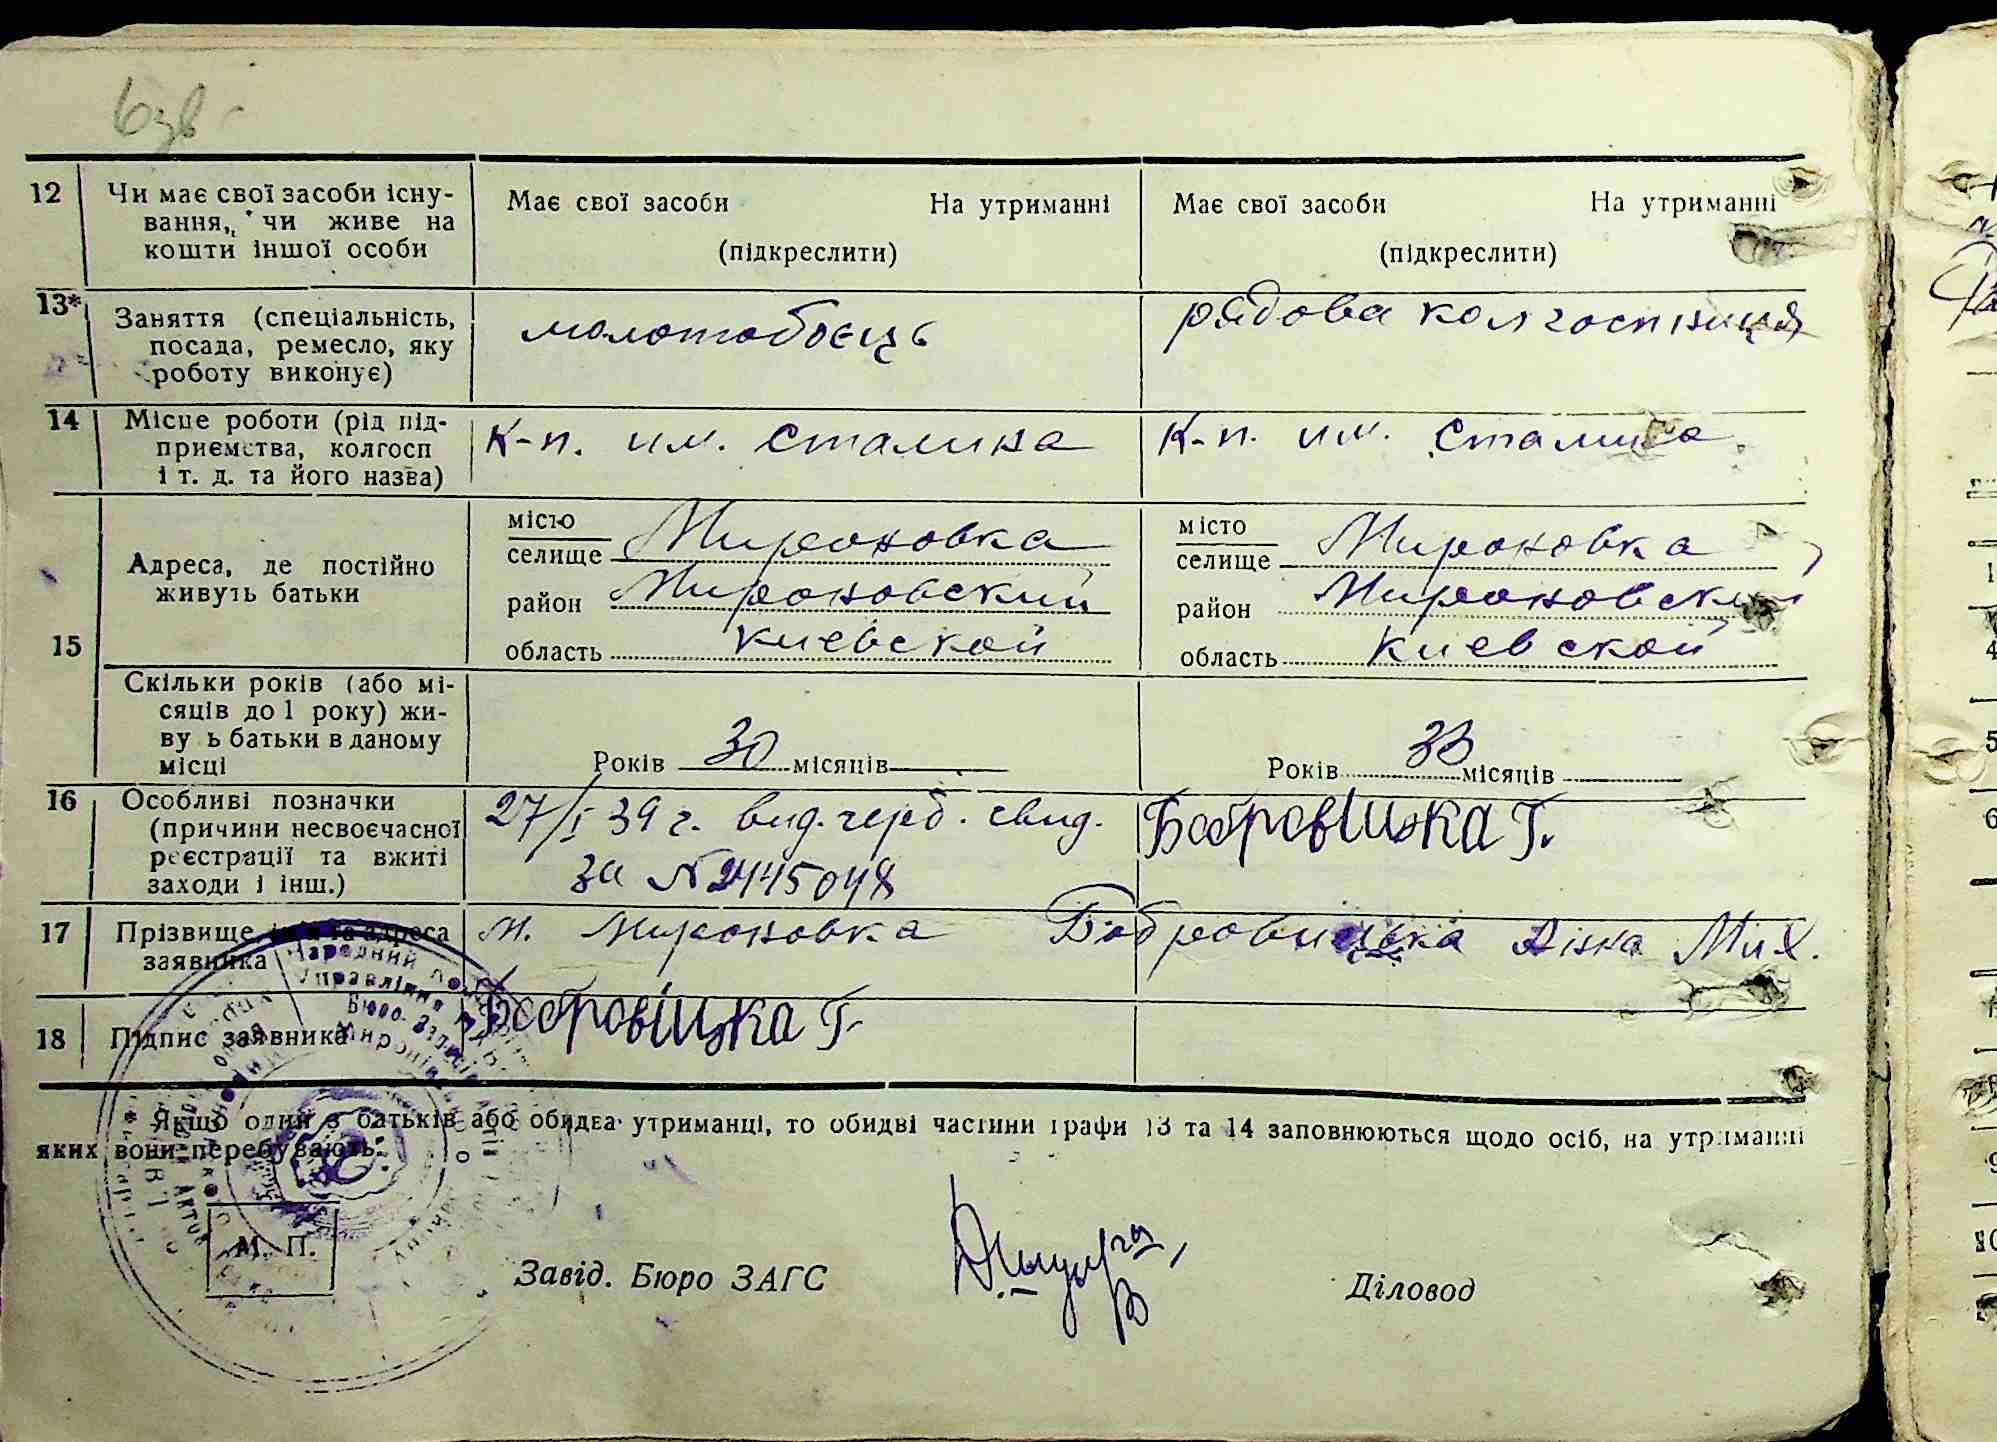 12 Чи має свої засоби існу-
вання, чи живе на
кошти іншої особи
Має свої засоби На утриманні
(підкреслити)
Має свої засоби На утриманні
(підкреслити)
13* Заняття (спеціальність,
посада, ремесло, яку
роботу виконує)
молотобоєць
рядова колгоспниця
14 Місце роботи (рід під-
приємства, колгосп
і т. д. та його назва)
К-п. им. Сталина
К-п. им. Сталина
15
Адреса, де постійно
живуть батьки
місто
селище Мироновка
район Мироновский
область Киевской
місто
селище Мироновка
район Мироновский
область Киевской
Скільки років (або мі-
сяців до 1 року) жи-
ву ь батьки в даному
місці
Років 30 місяців
Років 33 місяців
16 Особливі позначки
(причини несвоєчасної
реєстрації та вжиті
заходи і інш.)
27/I 39 г. вид. черб. свид.
за № 2445048
Бобровіцька Г.
17 Прізвище, ім'я та адреса
заявника
м. Мироновка Бобровицька Мих.
18 Підпис заявника
Бобровіцька Г.
Якщо один з батьків або обидва утриманці, то обидві частини графи 13 та 14 заповнюються щодо осіб, на утриманні
яких вони перебувають.
М. П.
Завід. Бюро ЗАГС
Діловод